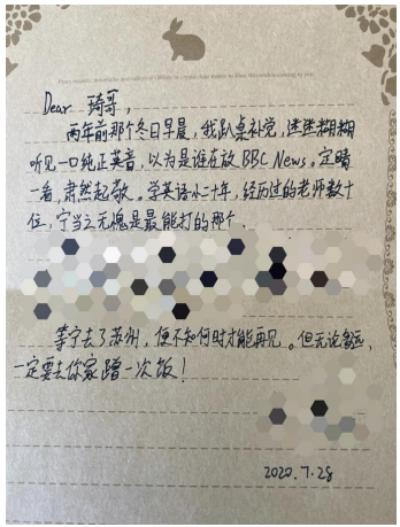 Dear 琦哥，
两年前那个冬日早晨，我趴桌补觉，迷迷糊糊
听见一口纯正英音，以为是谁在放BBC News。定睛
一看，肃然起敬。学英语小二十年，经历过的老师数十
位，宁当之无愧是最能打的那个。
等宁去了苏州，便不知何时才能再见。但无论多远，
一定要去你家蹭一次饭！
2020.7.28